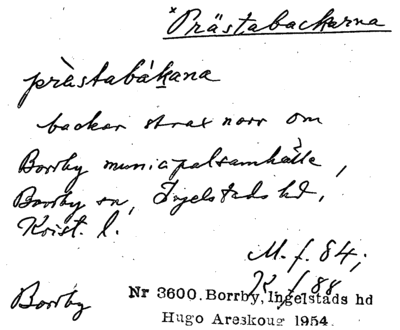 *Prästabackarna
prästabákana
backar strax norr om
Borrby municipalsamhälle,
Borrby sn, Ingelstads hd,
Krist. l.
M. f. 84;
K f 88
Borrby
Nr 3600. Borrby, Ingelstads hd
Hugo Areskoug 1954.